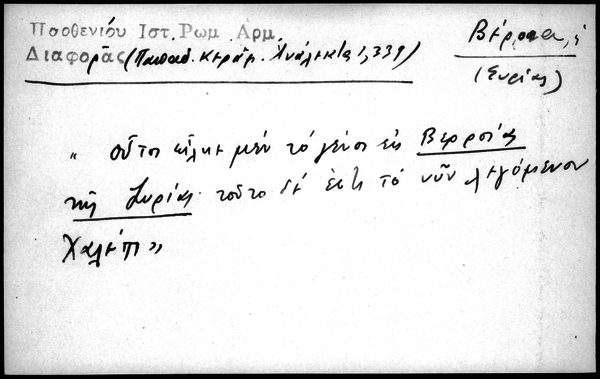 Ποσθενίου Ιστ. Ρωμ. Αρμ.
Διαφορᾶς (Παπαδ. Κεράμ. Ἀνάλεκτα 1, 339)
Βέρροια, ἡ
(Συρίας)
" οὗτοι εἷλκε μέν τό γένος ἐκ Βερροίας
τῆς Συρίας τοῦτο δέ ἐστι τό νῦν λεγόμενον
Χαλέπι »